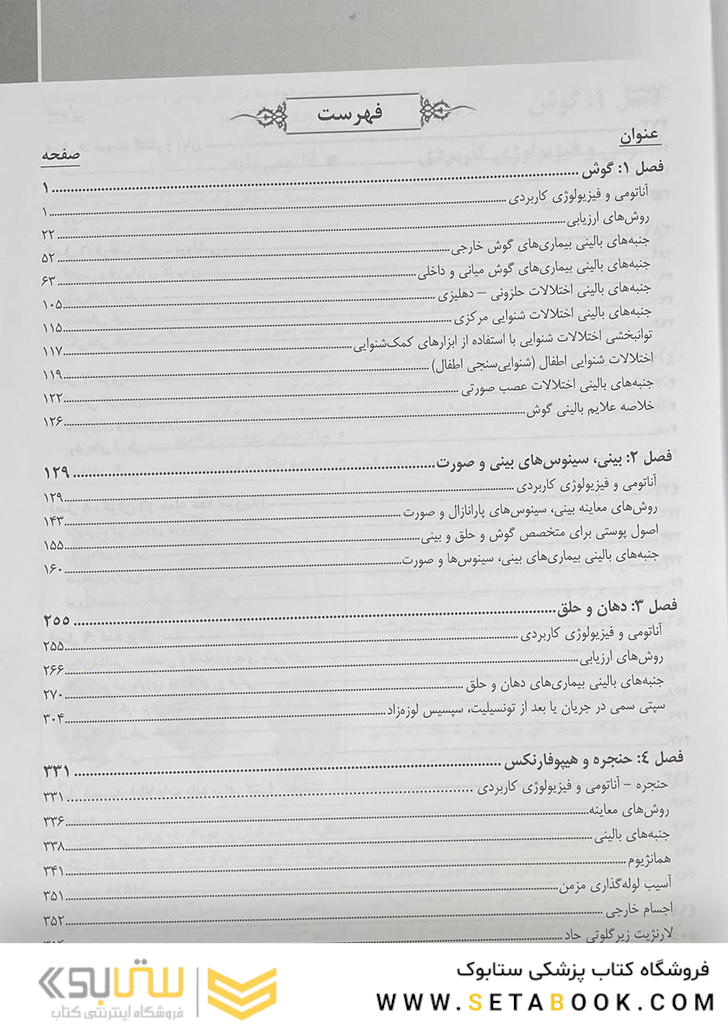 فهرست
عنوان
صفحه
فصل ۱: گوش ۱
آناتومی و فیزیولوژی کاربردی ۱
روش‌های ارزیابی ۲۲
جنبه‌های بالینی بیماری‌های گوش خارجی ۵۲
جنبه‌های بالینی بیماری‌های گوش میانی و داخلی ۶۳
جنبه‌های بالینی اختلالات حلزونی – دهلیزی ۱۰۵
جنبه‌های بالینی اختلالات شنوایی مرکزی ۱۱۵
توانبخشی اختلالات شنوایی با استفاده از ابزارهای کمک‌شنوایی ۱۱۷
اختلالات شنوایی اطفال (شنوایی‌سنجی اطفال) ۱۱۹
جنبه‌های بالینی اختلالات عصب صورتی ۱۲۲
خلاصه علایم بالینی گوش ۱۲۶
فصل ۲: بینی، سینوس‌های بینی و صورت ۱۲۹
آناتومی و فیزیولوژی کاربردی ۱۲۹
روش‌های معاینه بینی، سینوس‌های پارانازال و صورت ۱۴۳
اصول پوستی برای متخصص گوش و حلق و بینی ۱۵۵
جنبه‌های بالینی بیماری‌های بینی، سینوس‌ها و صورت ۱۶۰
فصل ۳: دهان و حلق ۲۵۵
آناتومی و فیزیولوژی کاربردی ۲۵۵
روش‌های ارزیابی ۲۶۶
جنبه‌های بالینی بیماری‌های دهان و حلق ۲۷۰
سپتی سمی در جریان یا بعد از تونسیلیت، سپسیس لوزه‌زاد ۳۰۴
فصل ٤: حنجره و هیپوفارنکس ۳۳۱
حنجره – آناتومی و فیزیولوژی کاربردی ۳۳۱
روش‌های معاینه ۳۳۶
جنبه‌های بالینی ۳۳۸
همانژیوم ۳۴۱
آسیب لوله‌گذاری مزمن ۳۵۱
اجسام خارجی ۳۵۲
لارنژیت زیرگلوتی حاد
فروشگاه کتاب پزشکی ستابوک
WWW.SETABOOK.COM
ستابوک
فروشگاه اینترنتی کتاب